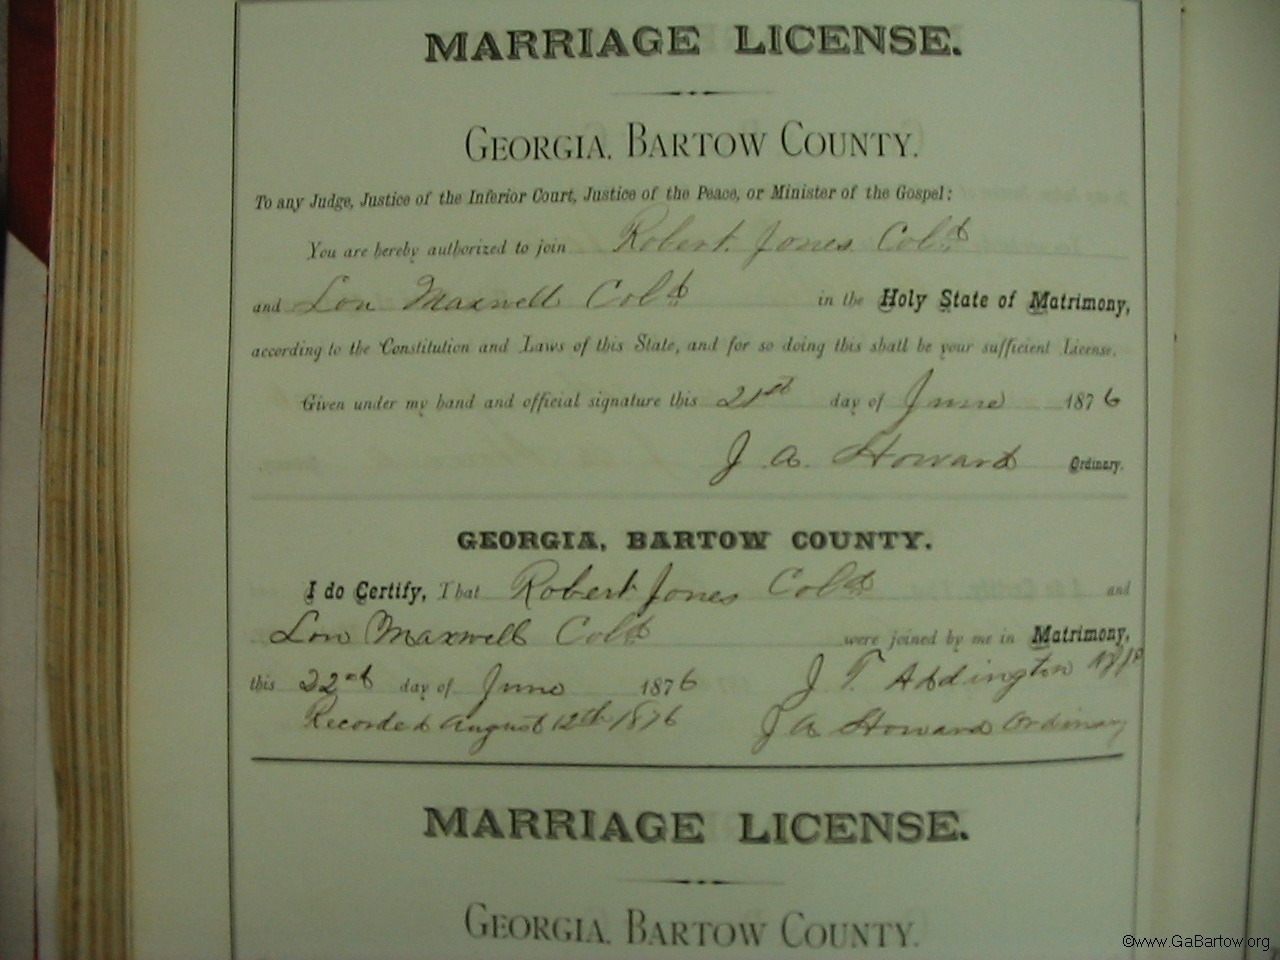 MARRIAGE LICENSE.
GEORGIA, BARTOW COUNTY.
To any Judge, Justice of the Inferior Court, Justice of the Peace, or Minister of the Gospel:
You are hereby authorized to join Robert Jones Cold
and Lou Maxwell Cold in the Holy State of Matrimony,
according to the Constitution and Laws of this State, and for so doing this shall be your sufficient License.
Given under my hand and official signature this 21st day of June 1876
J. A. Howard Ordinary.
GEORGIA, BARTOW COUNTY.
I do Certify, That Robert Jones Cold and
Lou Maxwell Cold were joined by me in Matrimony,
this 22nd day of June 1876 J. T. Addington
Recorded August 12th 1876 J A Howard Ordinary
MARRIAGE LICENSE.
GEORGIA, BARTOW COUNTY.
©www.GaBartow.org